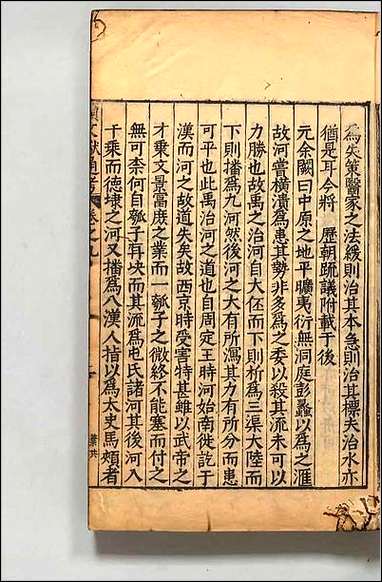 爲失策醫家之法緩則治其本急則治其標夫治水亦
猶是耳今將 歷朝疏議附載于後
元余闕曰中原之地平曠夷衍無洞庭彭蠡以爲之滙
故河嘗橫潰爲患其勢非多爲之委以殺其流未可以
力勝也故禹之治河自大伾而下則析爲三渠大陸而
下則播爲九河然後河之大有所瀉其力有所分而患
可平也此禹治河之道也自周定王時河始南徙訖于
漢而河之故道失矣故西京時受害特甚雖以武帝之
才乗文景富庶之業而一瓠子之微終不能塞而付之
無可柰何自瓠子再决而其流爲屯氏諸河其後河入
千乗而德埭之河又播爲八漢人指以爲太史馬頰者
續文獻通考 卷之九